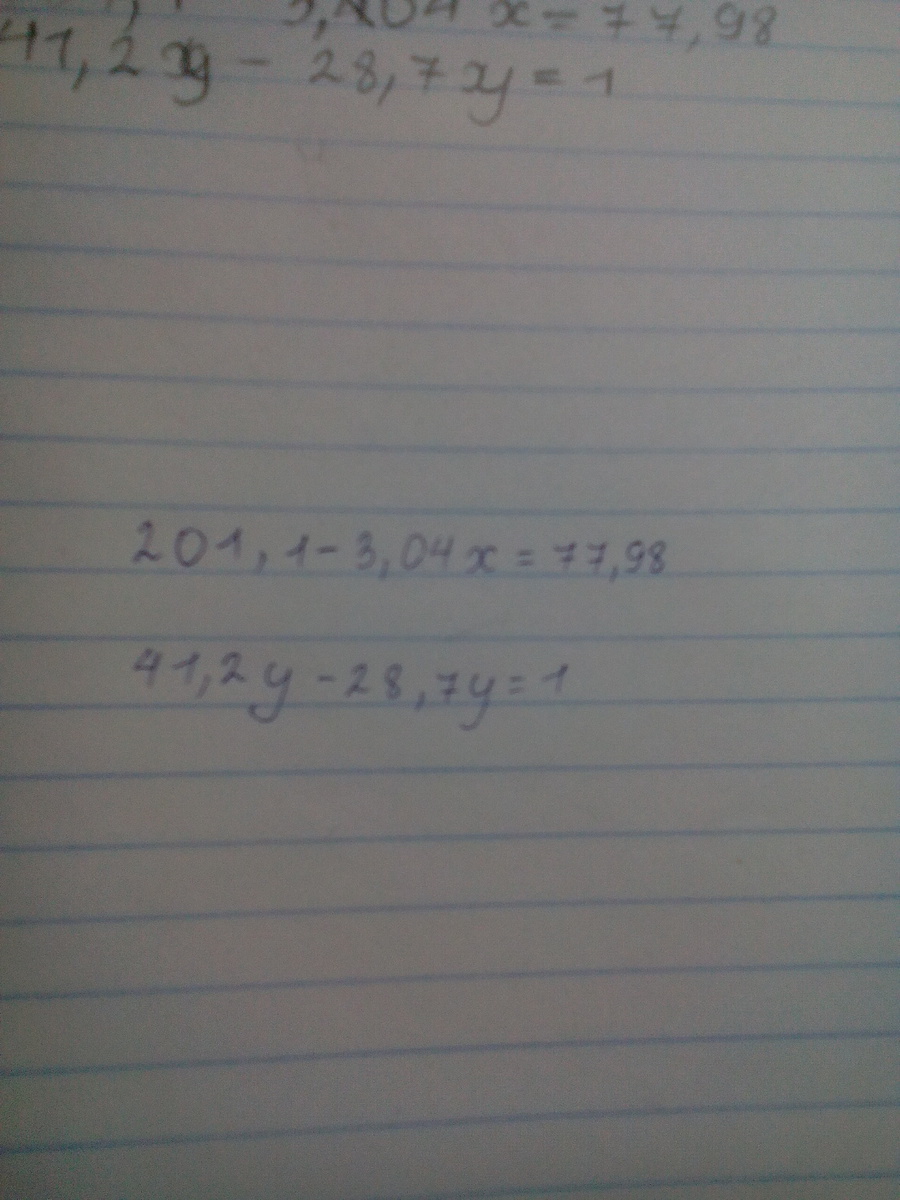 3,404 x = 77,98
41,2 y - 28,7 xy = 1
201,1 - 3,04 x = 77,98
41,2 y - 28,7 y = 1